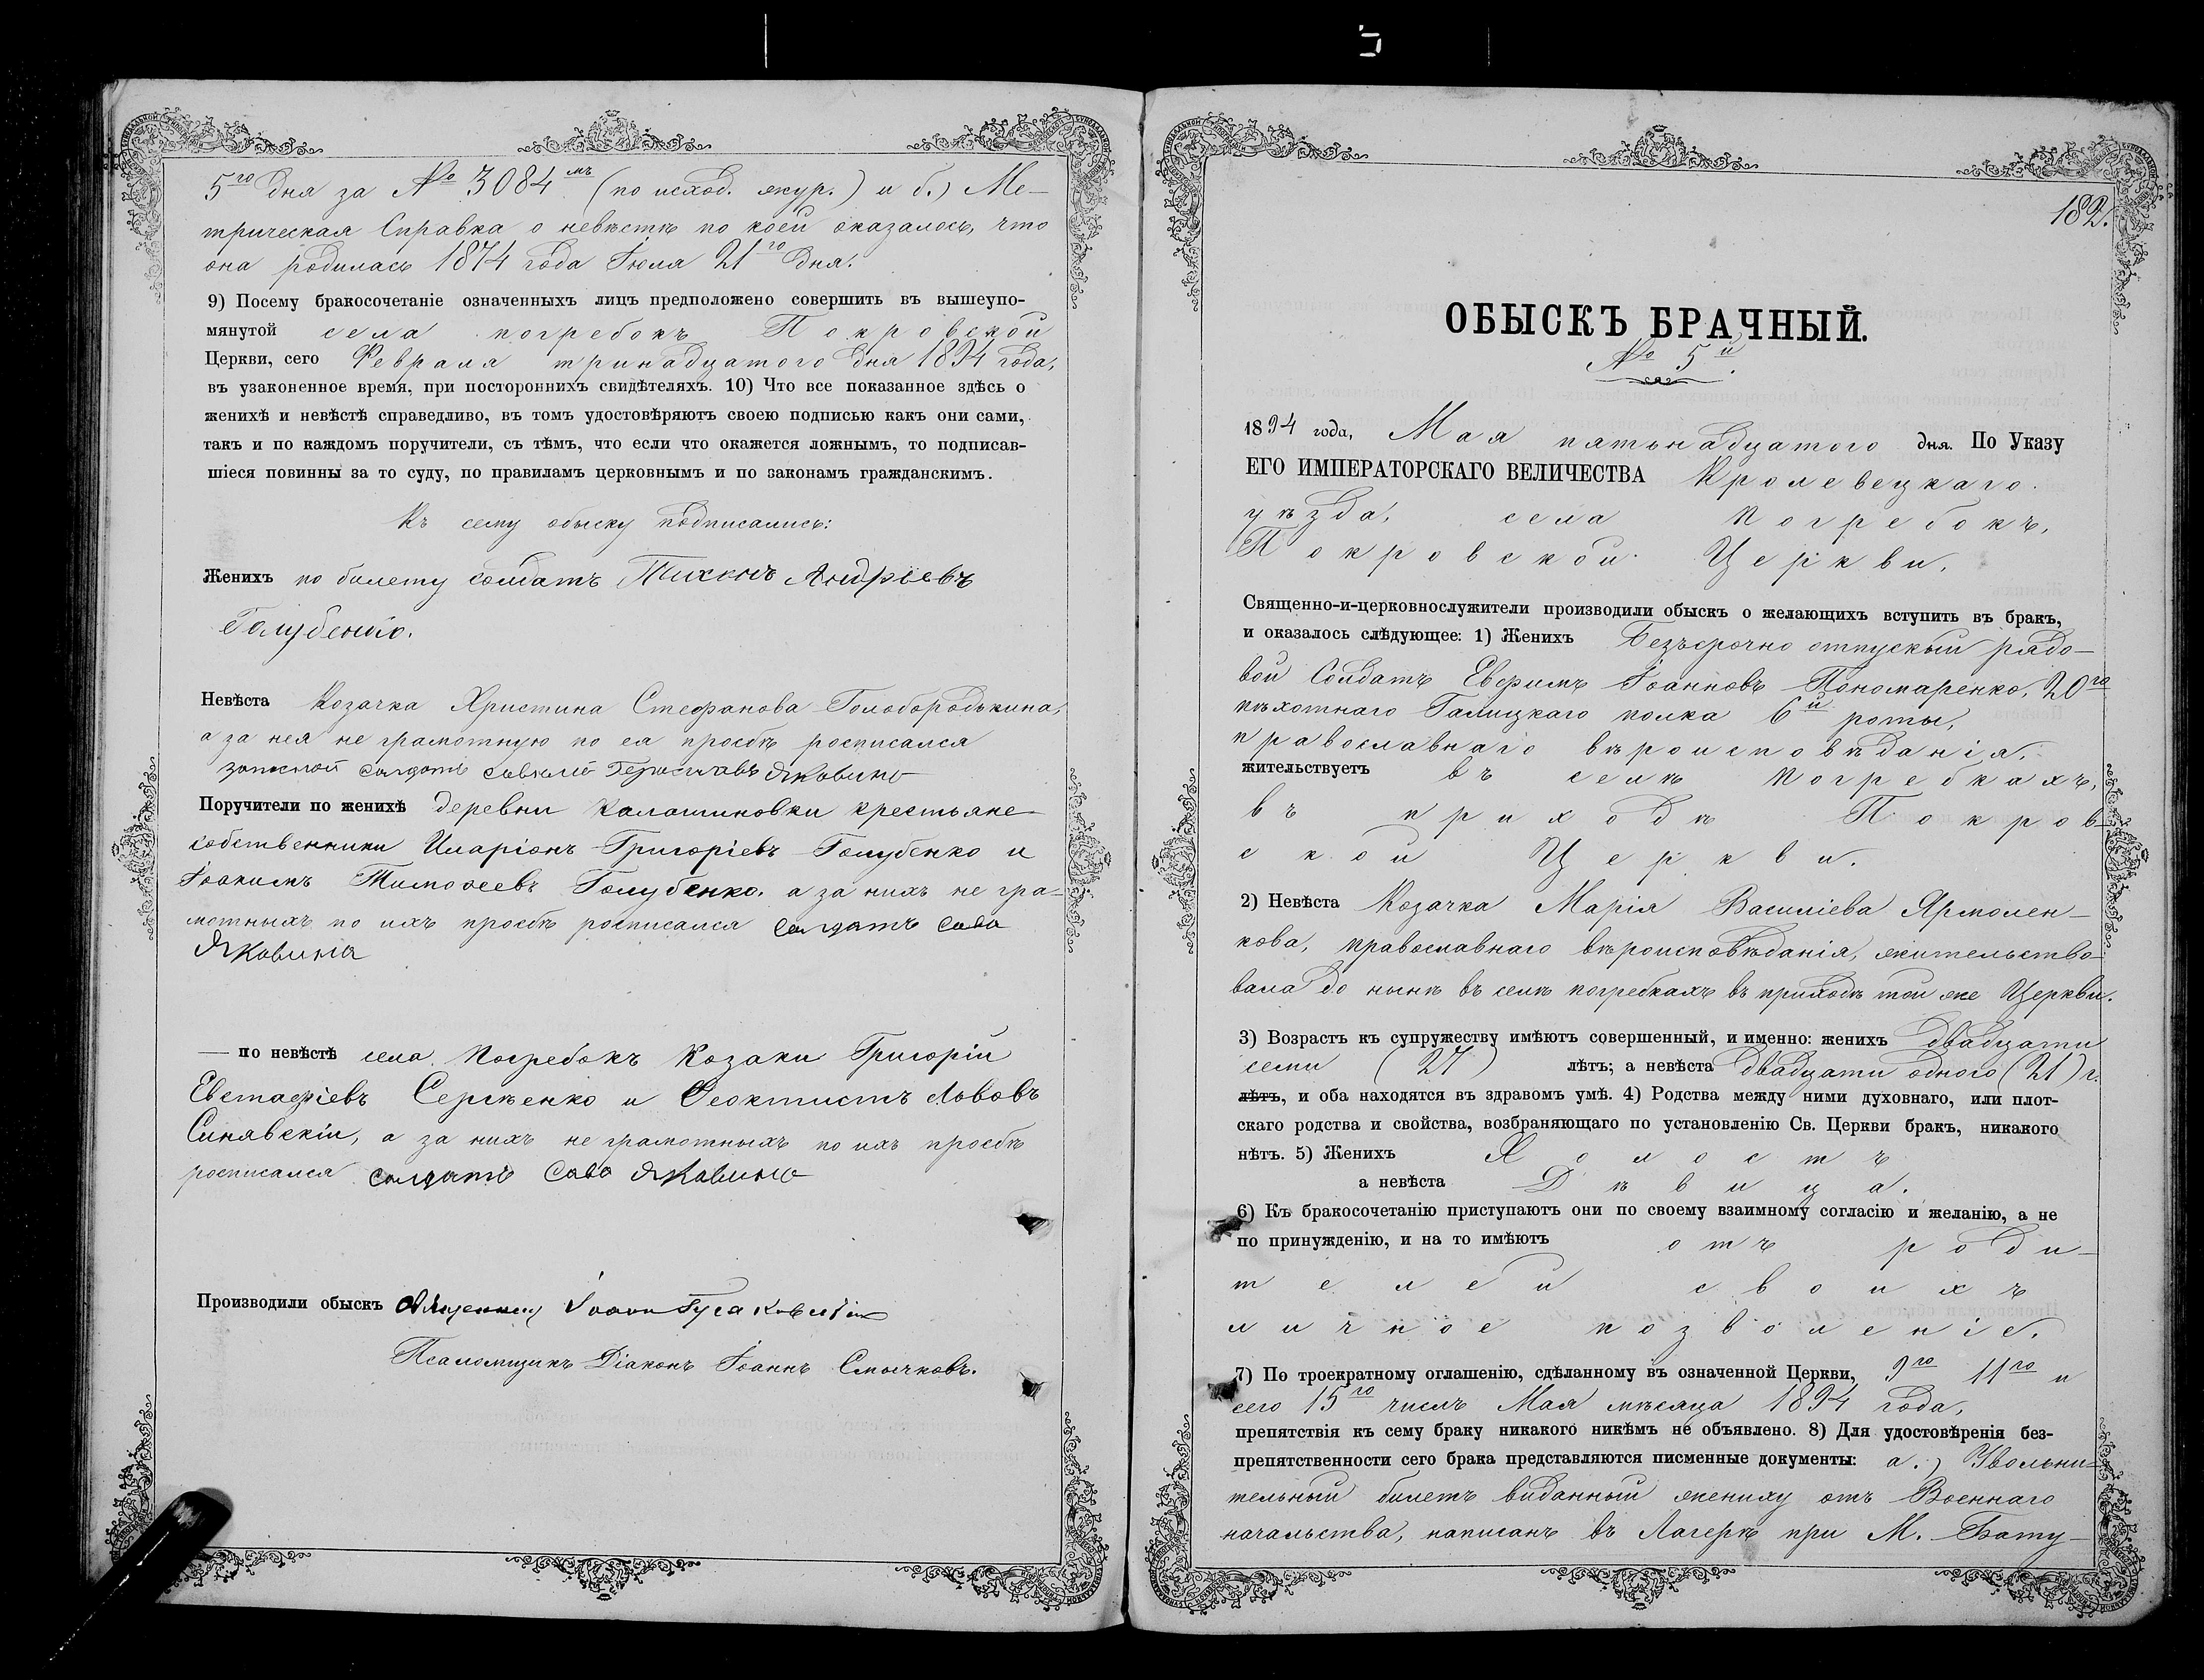 5го дня за № 3084мъ (по исход. жур.) и б.) Ме-
трическая Справка о невѣстѣ по коей оказалось, что
она родилась 1874 года Іюля 21го дня.
9) Посему бракосочетаніе означенныхъ лицъ предположено совершить въ вышеупо-
мянутой села Погребокъ Покровской
Церкви, сего Февраля тринадцатого дня 1894 года,
въ узаконенное время, при постороннихъ свидѣтеляхъ. 10) Что все показанное здѣсь о
женихѣ и невѣстѣ справедливо, въ томъ удостовѣряютъ своею подписью какъ они сами,
такъ и по каждомъ поручители, съ тѣмъ, что если что окажется ложнымъ, то подписав-
шіеся повинны за то суду, по правиламъ церковнымъ и по законамъ гражданскимъ.
Къ сему обыску подписались:
Женихъ по билету солдатъ Тихонъ Андріевъ
Голубенко.
Невѣста Козачка Христина Стефанова Голобородькина,
а за нея не грамотную по ея просьбѣ росписался
запасной солдатъ
Поручители по женихѣ деревни Калашиновки крестьяне
собственники Иларіонъ Григоріевъ Голубенко и
Іоакимъ Тимофеевъ Голубенко, а за нихъ не гра-
мотныхъ по ихъ просьбѣ росписался солдатъ Сава
Яковина
— по невѣстѣ села Погребокъ Козаки Григорій
Евстафіевъ Сергѣенко и Феоктистъ Львовъ
Синявскій, а за нихъ не грамотныхъ по ихъ просьбѣ
росписался солдатъ Сава
Производили обыскъ Священникъ Іоаннъ
Псаломщикъ Діаконъ Іоаннъ Смычковъ.
182.
ОБЫСКЪ БРАЧНЫЙ.
№ 5й.
1894 года, Мая пятьнадцатого дня. По Указу
ЕГО ИМПЕРАТОРСКАГО ВЕЛИЧЕСТВА Кролевецкаго
уѣзда, села Погребокъ,
Покровской Церкви,
Священно-и-церковнослужители производили обыскъ о желающихъ вступить въ бракъ,
и оказалось слѣдующее: 1) Женихъ Безъсрочно отпускый рядо-
вой Солдатъ Евфимъ Іоанновъ Пономаренко, 20го
пѣхотнаго Галицкаго полка 6й роты,
православнаго вѣроисповѣданія,
жительствуетъ въ селѣ Погребкахъ,
въ приходѣ Покров-
ской Церкви.
2) Невѣста Козачка Марія Василіева Ярмолен-
кова, православнаго вѣроисповѣданія, жительство-
вала до нынѣ въ селѣ Погребкахъ въ приходѣ той же Церкви.
3) Возрастъ къ супружеству имѣютъ совершенный, и именно: женихъ двадцати
семи (27) лѣтъ; а невѣста двадцати одного (21) г.
лѣтъ, и оба находятся въ здравомъ умѣ. 4) Родства между ними духовнаго, или плот-
скаго родства и свойства, возбраняющаго по установленію Св. Церкви бракъ, никакого
нѣтъ. 5) Женихъ Холостъ
а невѣста Дѣвица.
6) Къ бракосочетанію приступаютъ они по своему взаимному согласію и желанію, а не
по принужденію, и на то имѣютъ отъ роди-
телей своихъ
личное позволеніе.
7) По троекратному оглашенію, сдѣланному въ означенной Церкви, 9го 11го и
сего 15го числъ Мая мѣсяца 1894 года,
препятствія къ сему браку никакого никѣмъ не объявлено. 8) Для удостовѣренія без-
препятственности сего брака представляются писменные документы: а.) Увольни-
тельный билетъ виданный жениху отъ Военнаго
начальства, написанъ въ Лагерѣ при М. Бату-